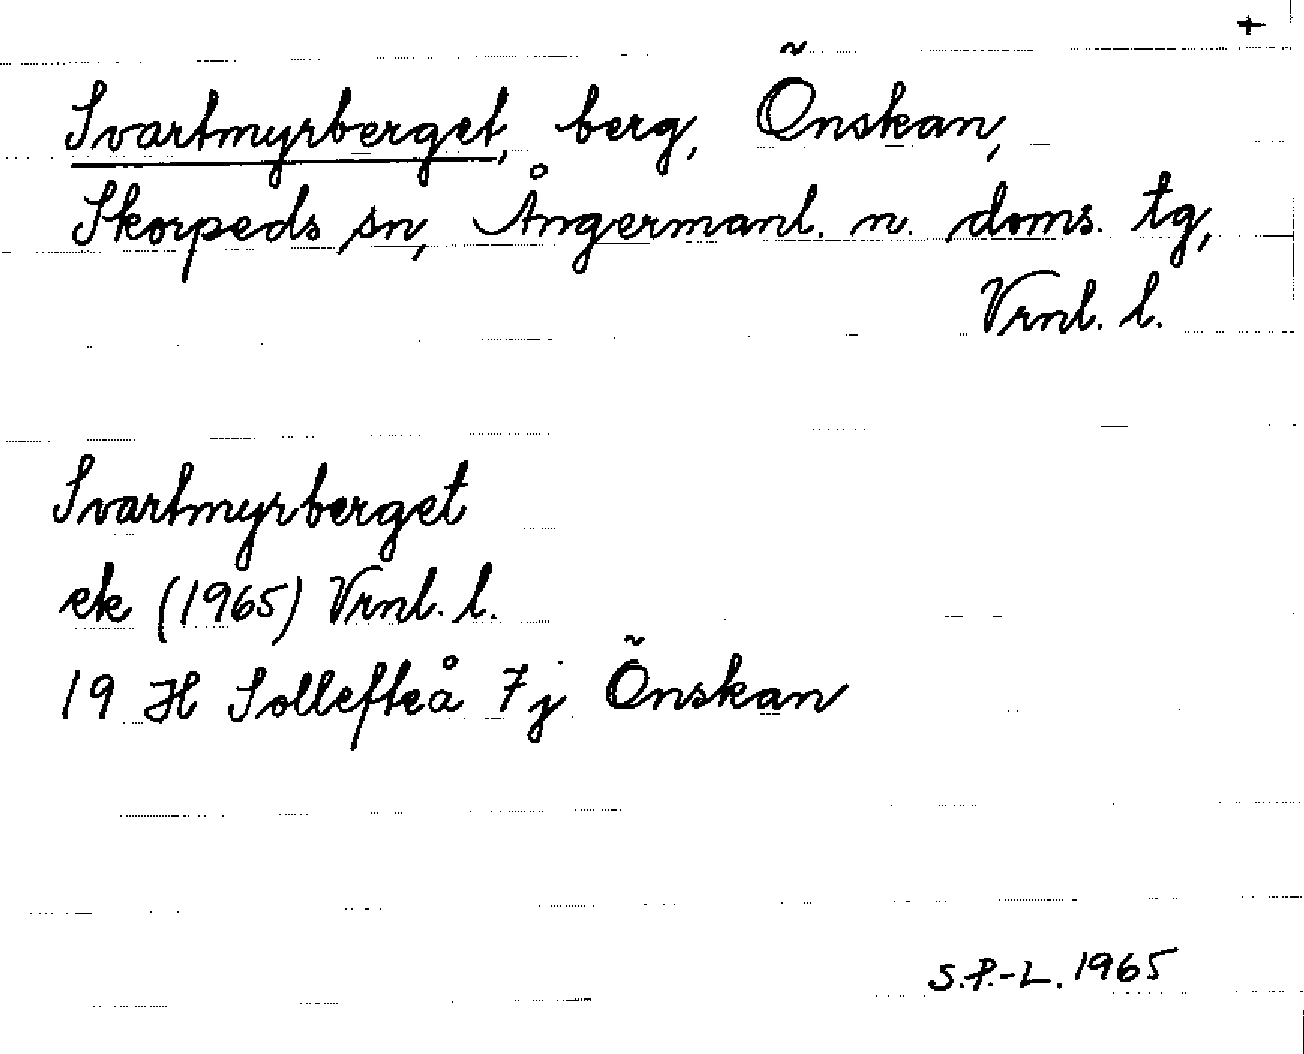 +
Svartmyrberget, berg, Önskan,
Skorpeds sn, Ångermanl. n. doms. tg,
Vrnl. l.
Svartmyrberget
ek (1965) Vrnl. l.
19 H Sollefteå 7j Önskan
S.P.-L. 1965